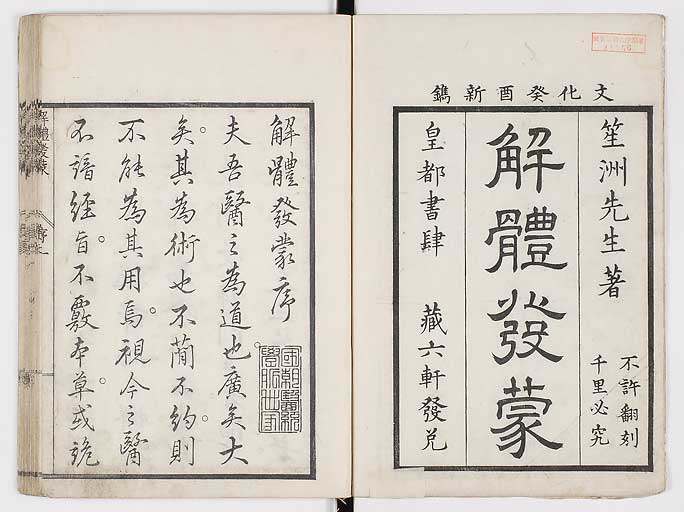 文化癸酉新鐫
笙洲先生著
不許翻刻
千里必究
解體發蒙
皇都書肆 藏六軒發兌
解體發蒙序
夫吾醫之為道也廣矣大
矣。其為術也不蕳不約。則
不能為其用焉。視今之醫
不諳經旨。不覈本草。或詭
解體發蒙